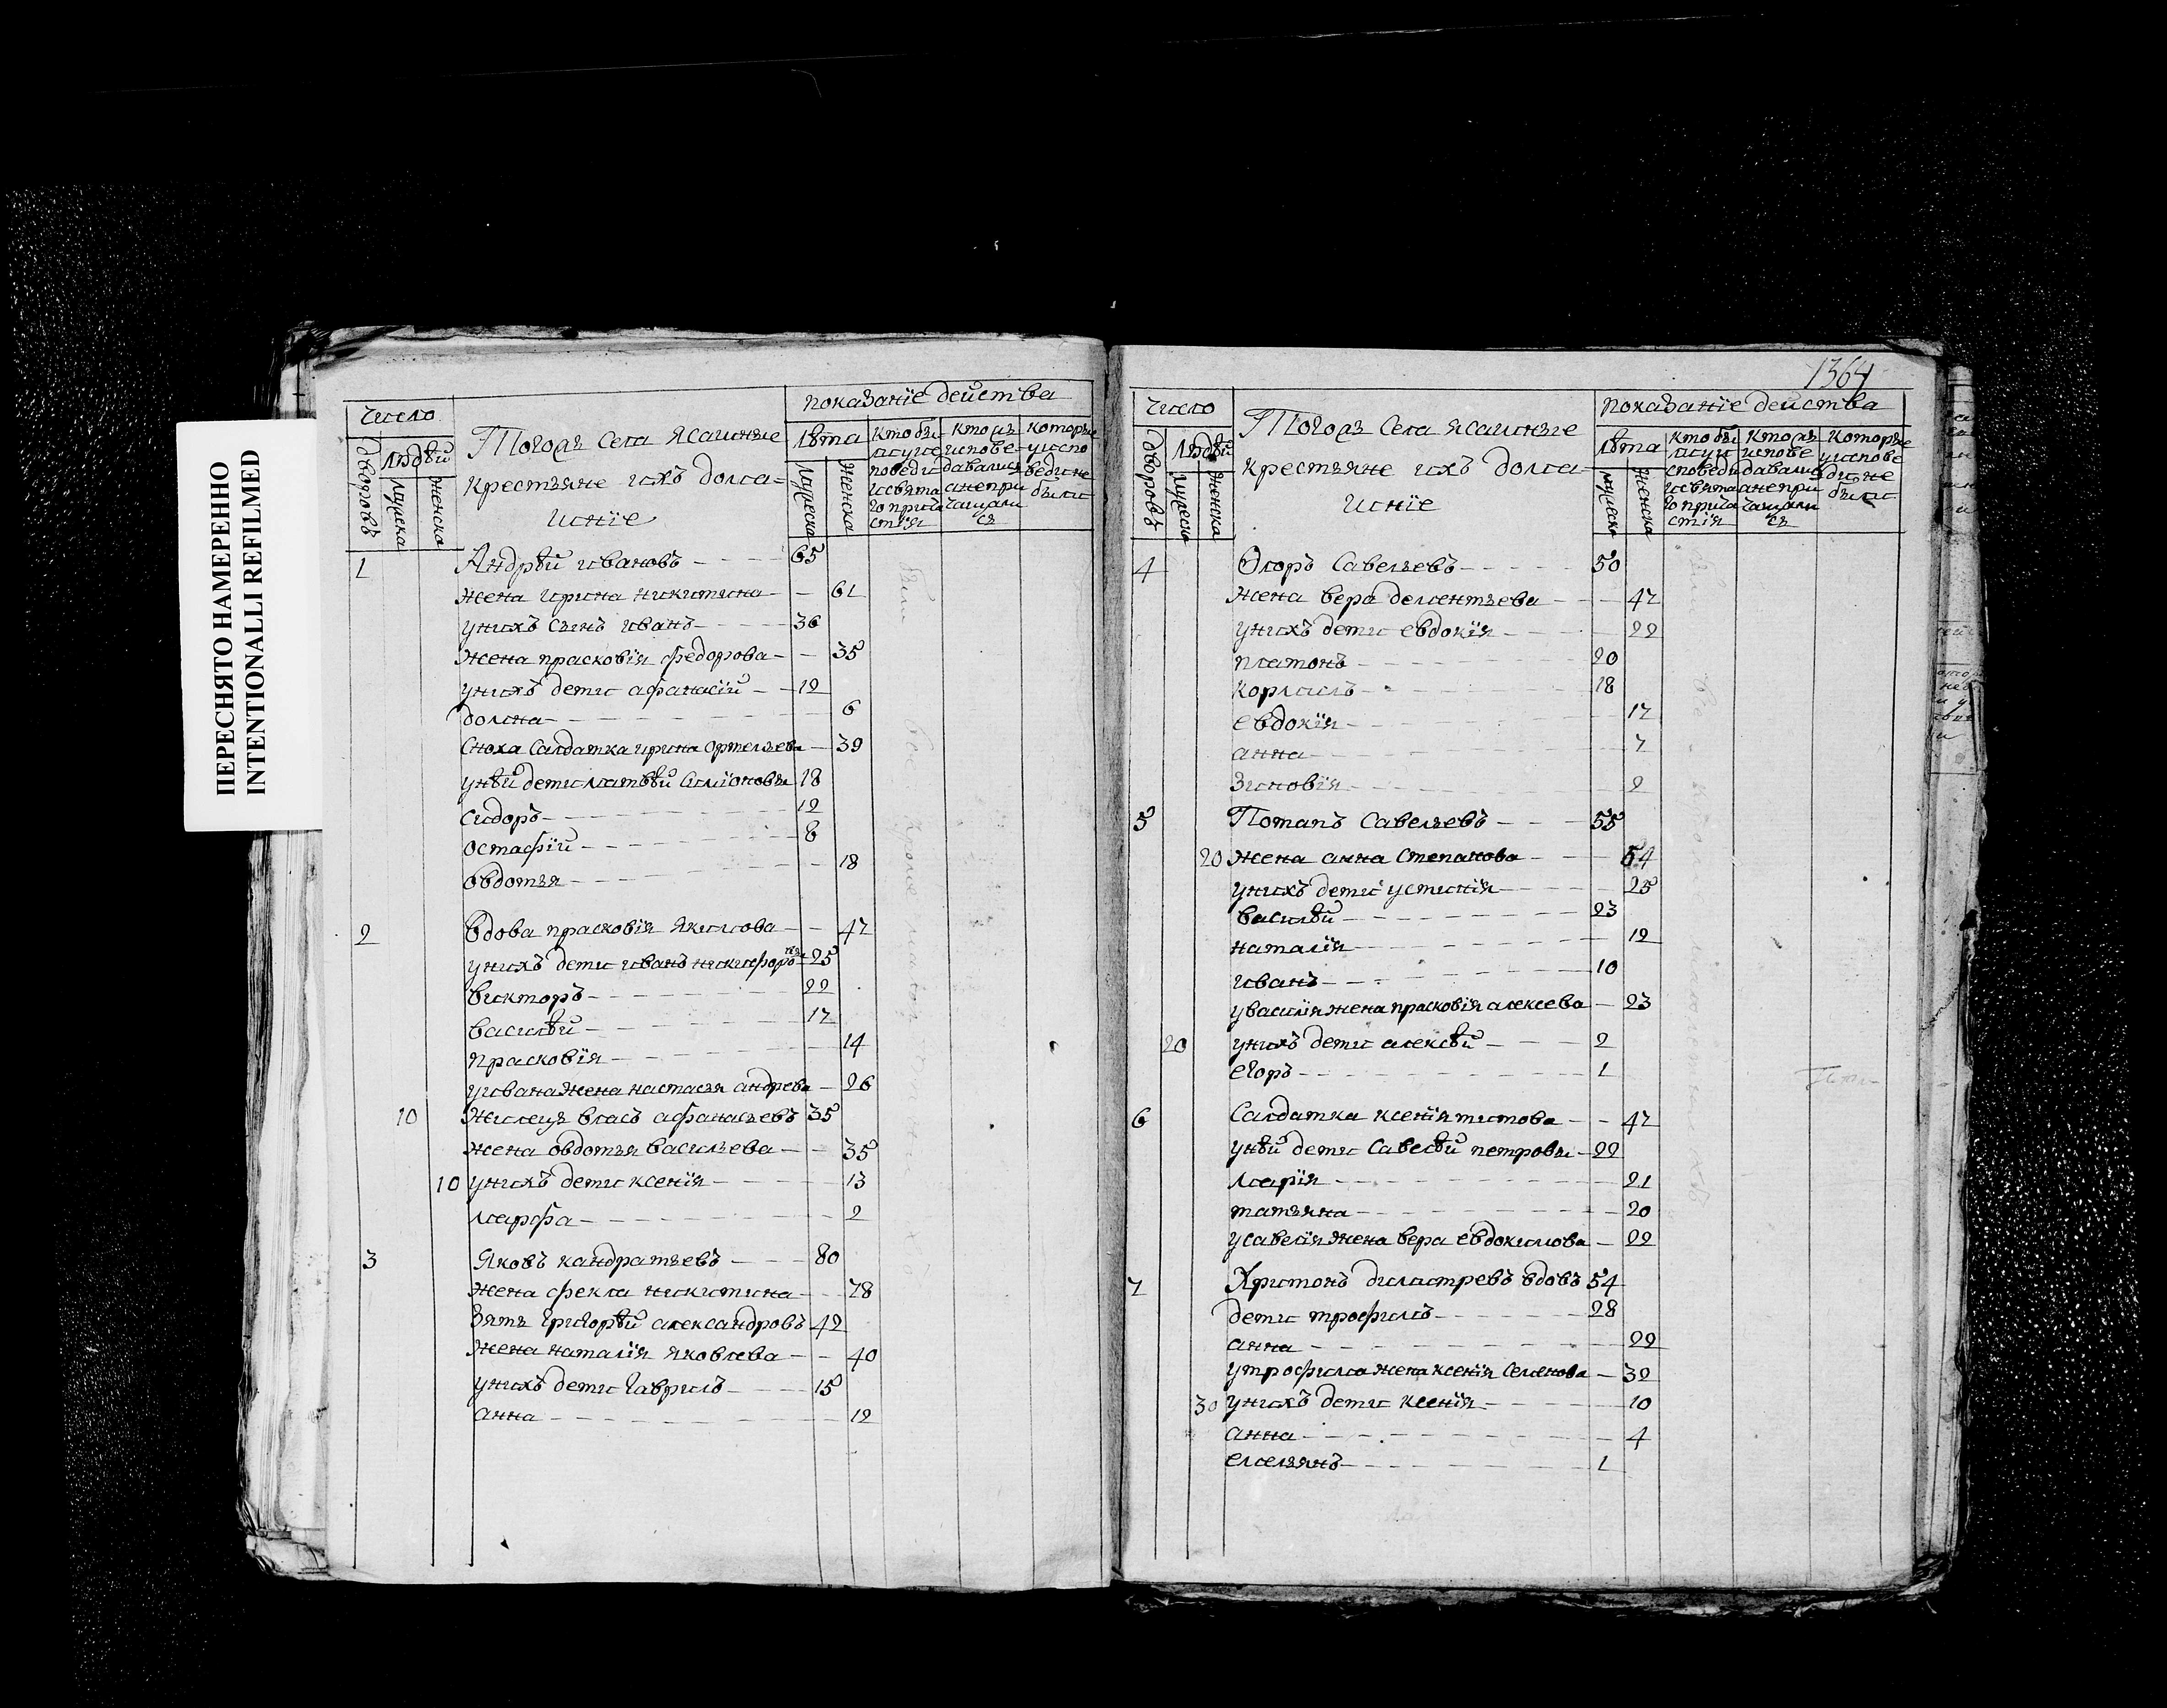 ПЕРЕСНЯТО НАМЕРЕННО
INTENTIONALLI REFILMED
число
дворовъ
людѣй
мужеска
женска
Того жъ села ясашные
крестьяне ихъ дома-
шнiе
показанiе действа
лѣта
мужеска
женска
кто бы-
ли у ис
поведи
и свята
го прича
стiя
кто из
испове-
давалися
а не при
чащали
ся
которые
у испо
веди не
были
1 Андрѣй ивановъ 65
жена ирина никитина 61
у нихъ сынъ иванъ 36
жена прасковiя федорова 35
у нихъ дети афанасiй 12
домна 6
сноха салдатка ирина ортемьева 39
у нѣй дети матвѣй симiоновы 18
сидоръ 12
остафiй 8
овдотья 18
2 вдова прасковiя якимова 47
у нихъ дети иванъ никифоро 25
викторъ 22
василѣй 17
прасковiя 14
у ивана жена настасья андрева 26
10 жилецъ власъ афанасьевъ 35
жена овдотья васильева 35
10 у нихъ дети ксенiя 13
марфа 2
3 яковъ кандратьевъ 80
жена фекла никитина 78
зять григорѣй александровъ 42
жена наталiя яковлева 40
у нихъ дети гаврилъ 15
анна 12
1364
число
дворовъ
людѣй
мужеска
женска
Того жъ села ясашные
крестьяне ихъ дома-
шнiе
показанiе действа
лѣта
мужеска
женска
кто бы
ли у и
споведи
и свята
го прича
стiя
кто из
испове
давалис
а не при
чащали
ся
которые
у испове
ди не
были
4 Егоръ савельевъ 50
жена вера дементьева 47
у нихъ дети евдокiя 22
платонъ 20
кормилъ 18
евдокiя 17
анна 7
зиновiя 2
5 Потапъ савельевъ 55
20 жена анна степанова 54
у нихъ дети устинiя 25
василѣй 23
наталiя 12
иванъ 10
у василия жена прасковiя алексева 23
20 у нихъ дети алексѣй 2
егоръ 1
6 салдатка ксенiя титова 47
у нѣй дети савелѣй петровы 22
марiя 21
татьяна 20
у савелiя жена вера евдокимова 22
7 Хритонъ димитревъ вдовъ 54
дети трофимъ 28
анна 22
у трофима жена ксенiя семенова 32
30 у нихъ дети ксенiя 10
анна 4
емельянъ 1